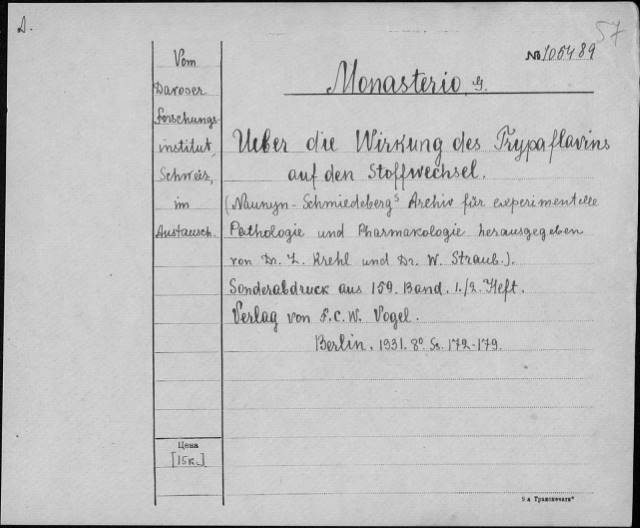 D.
57
№ 106489
Monasterio, G.
Vom
Davoser
Forschungs-
institut,
Schweiz,
im
Austausch.
Ueber die Wirkung des Trypaflavins
auf den Stoffwechsel.
(Naunyn-Schmiedebergs Archiv für experimentelle
Pathologie und Pharmakologie herausgegeben
von Dr. L. Krehl und Dr. W. Straub.).
Sonderabdruck aus 159. Band. 1./2. Heft.
Verlag von F.C.W. Vogel.
Berlin. 1931. 8º. Ss. 172-179.
Цена
[15к.]
9 л Транспечати"